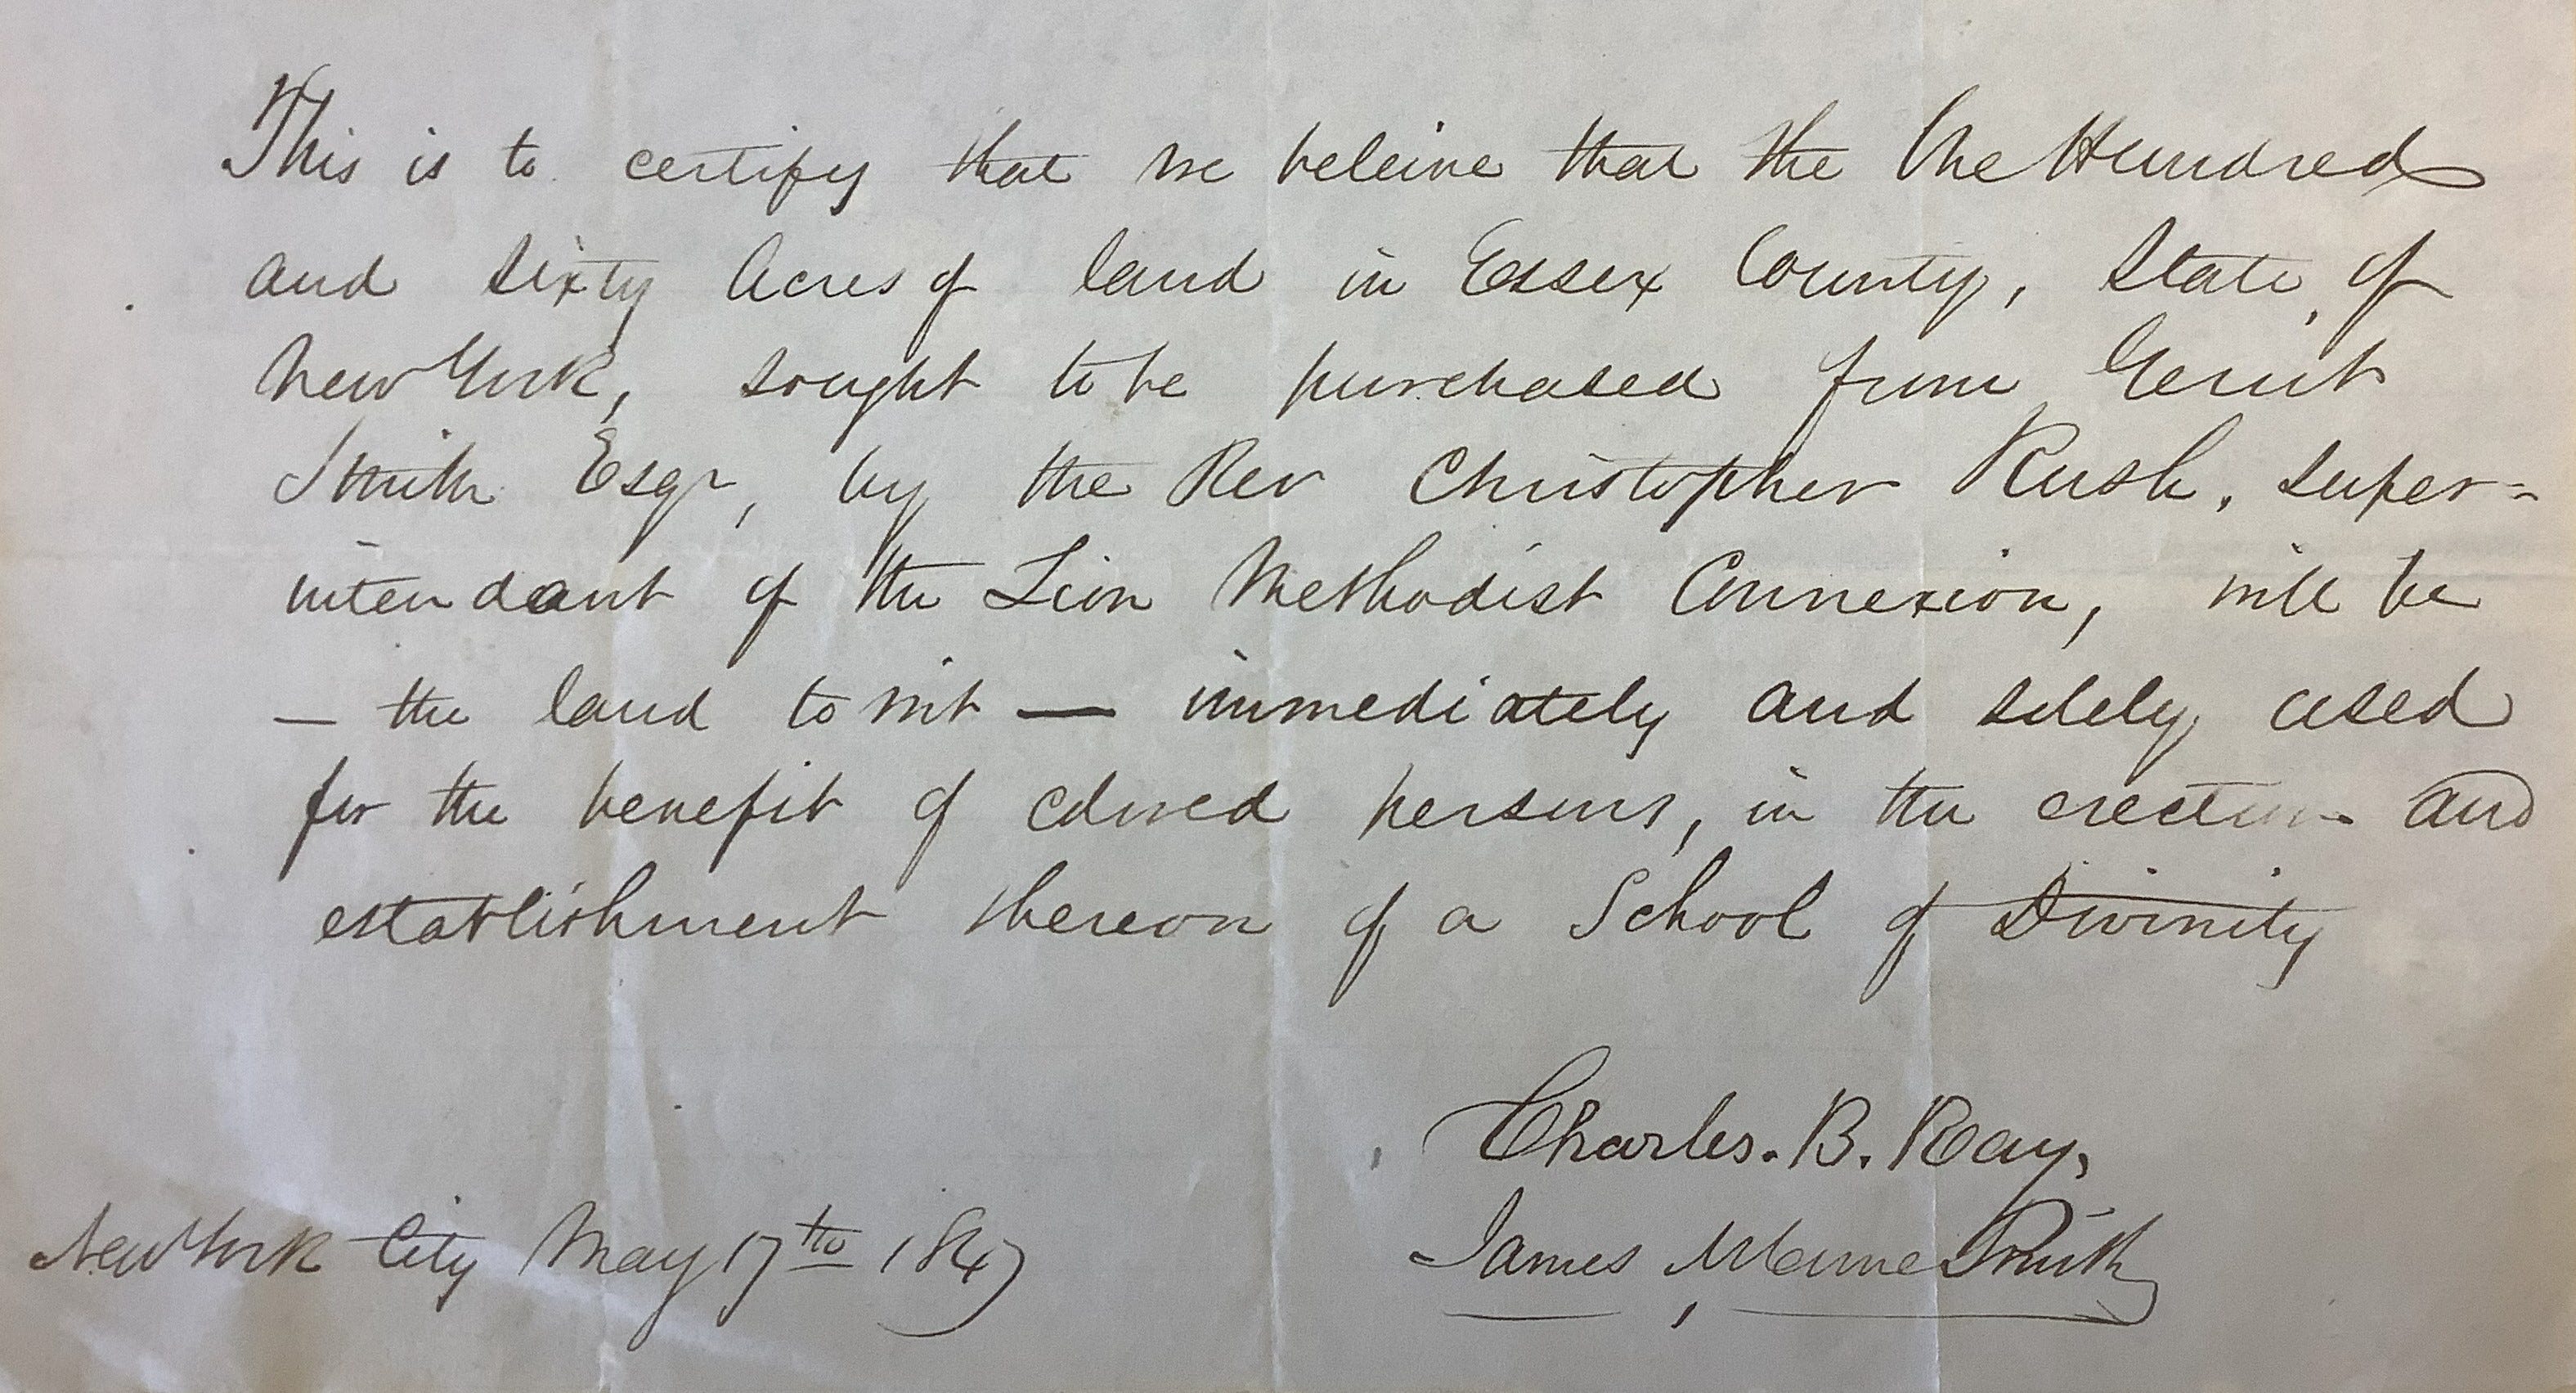 This is to certify that we beleive that the One Hundred
and sixty Acres of land in Essex County, State of
New York, sought to be purchased from Gerrit
Smith Esqr, by the Rev Christopher Rush, super=
intendant of the Zion Methodist Connexion, will be
— the land to wit — immediately and solely used
for the benefit of colored persons, in the erection and
establishment thereon of a School of Divinity
Charles. B. Ray,
New York City May 17th 1847
James McCune Smith